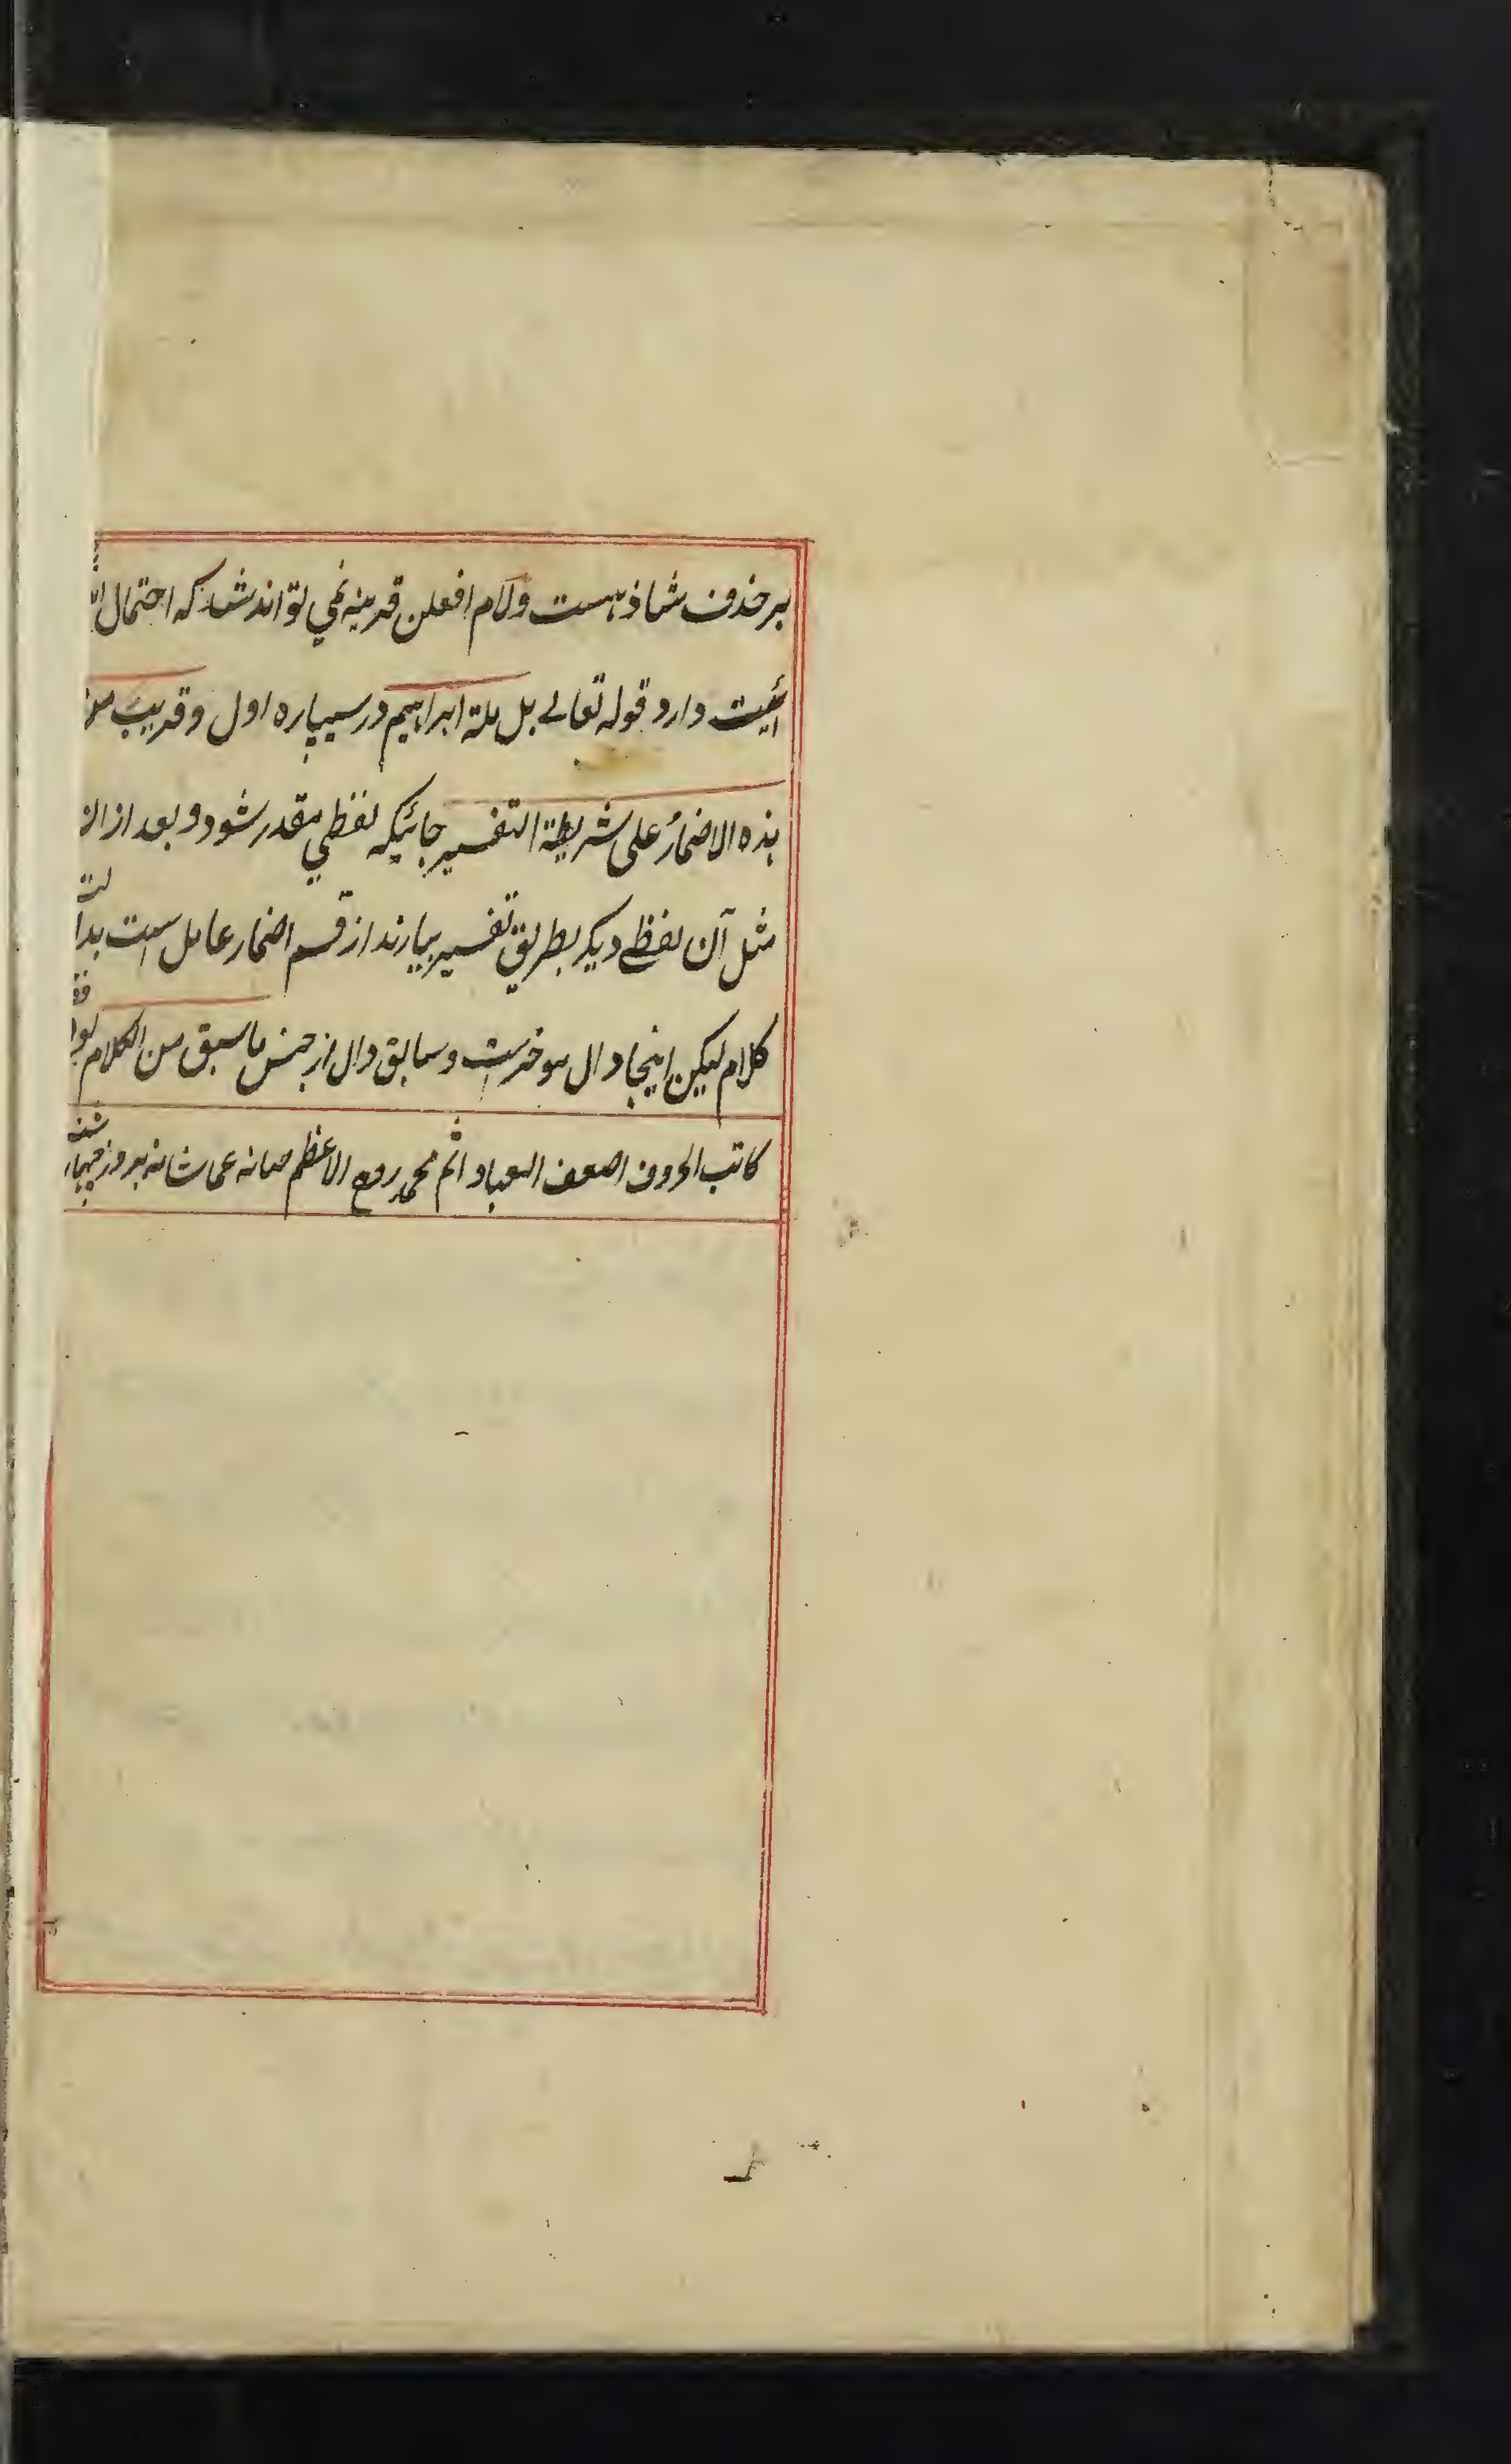 بر حذف شاذ هست و لام افعلن قرینه نمی تواند شد که احتمال
ئیت دارد قوله تعالے بل ملة ابراهیم در سیپاره اول و قریب من
هذه الاضمار علی شریطة التفسیر جائیکه لفظی مقدر شود و بعد از ان
مثل آن لفظے دیکر بطریق تفسیر بیارند از قسم اضمار عامل است
کلام لیکن اینجا دال موخرست و سابق دال از جنس ما سبق من الکلام
کاتب الحروف اضعف العباد اثم محمد الاعظم صانه عما شانه بروز